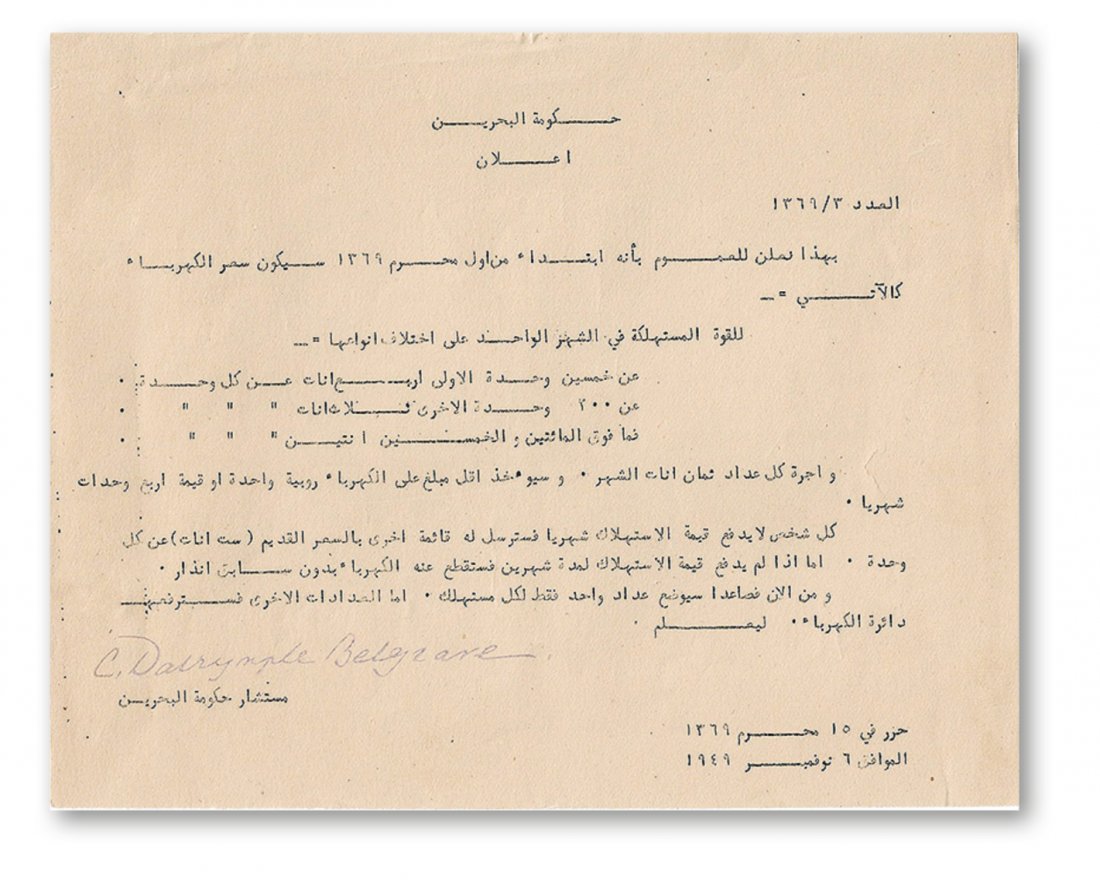 حكومة البحرين
اعلان
العدد ١٣٦٩/٣
بهذا نعلن للعموم بأنه ابتداء من اول محرم ١٣٦٩ سيكون سعر الكهرباء
كالآتي =ـ
للقوة المستهلكة في الشهر الواحد على اختلاف انواعها =ـ
عن خمسين وحدة الاولى اربع انات عن كل وحدة ٠
عن ٢٠٠ وحدة الاخرى ثلاث انات " " " ٠
فما فوق المائتين و الخمسين انتين " " " ٠
و اجرة كل عداد ثمان انات الشهر ٠ و سيوءخذ اقل مبلغ على الكهرباء روبية واحدة او قيمة اربع وحدات
شهريا ٠
كل شخص لا يدفع قيمة الاستهلاك شهريا فسترسل له قائمة اخرى بالسعر القديم (ست انات) عن كل
وحدة ٠ اما اذا لم يدفع قيمة الاستهلاك لمدة شهرين فستقطع عنه الكهرباء بدون سابق انذار ٠
و من الان فصاعدا سيوضع عداد واحد فقط لكل مستهلك ٠ اما العدادات الاخرى فسترفعها
دائرة الكهرباء ٠ ليعلم ٠
C. Dalrymple Belgrave.
مستشار حكومة البحرين
حرر في ١٥ محرم ١٣٦٩
الموافق ٦ نوفمبر ١٩٤٩